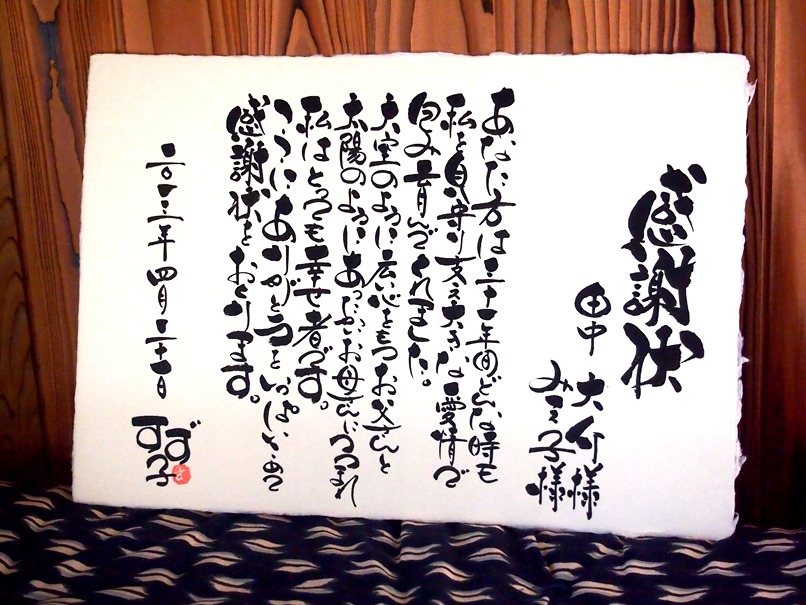 感謝状
田中 大介様
みえ子様
あなた方は三十年間どんな時も
私を見守り支え大きな愛情で
包み育んでくれました。
大空のように広い心をもつお父さんと
太陽のようにあったかいお母さんにつつまれ
私はとっても幸せ者です。
いっぱい、めいっぱい
感謝状をおくります。
二〇一三年四月二十一日
すずこ